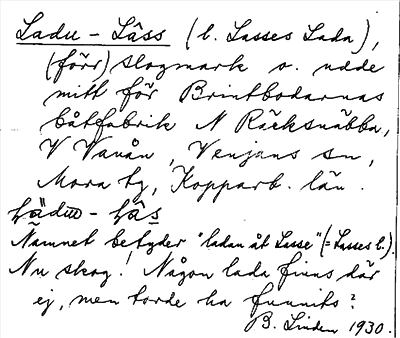 Ladu-Låss (l. Lasses Lada),
(förr) slogmark o. udde
mitt för Brintbodarnas
båtfabrik N Räcksnäbba,
V Vanån, Venjans sn,
Mora tg, Kopparb. län.
Lädu-Lås
Namnet betyder "ladan åt Lasse" (= Lasses l.).
Nu skog! Någon lada finns där
ej, men torde ha funnits?
B. Linden 1930.